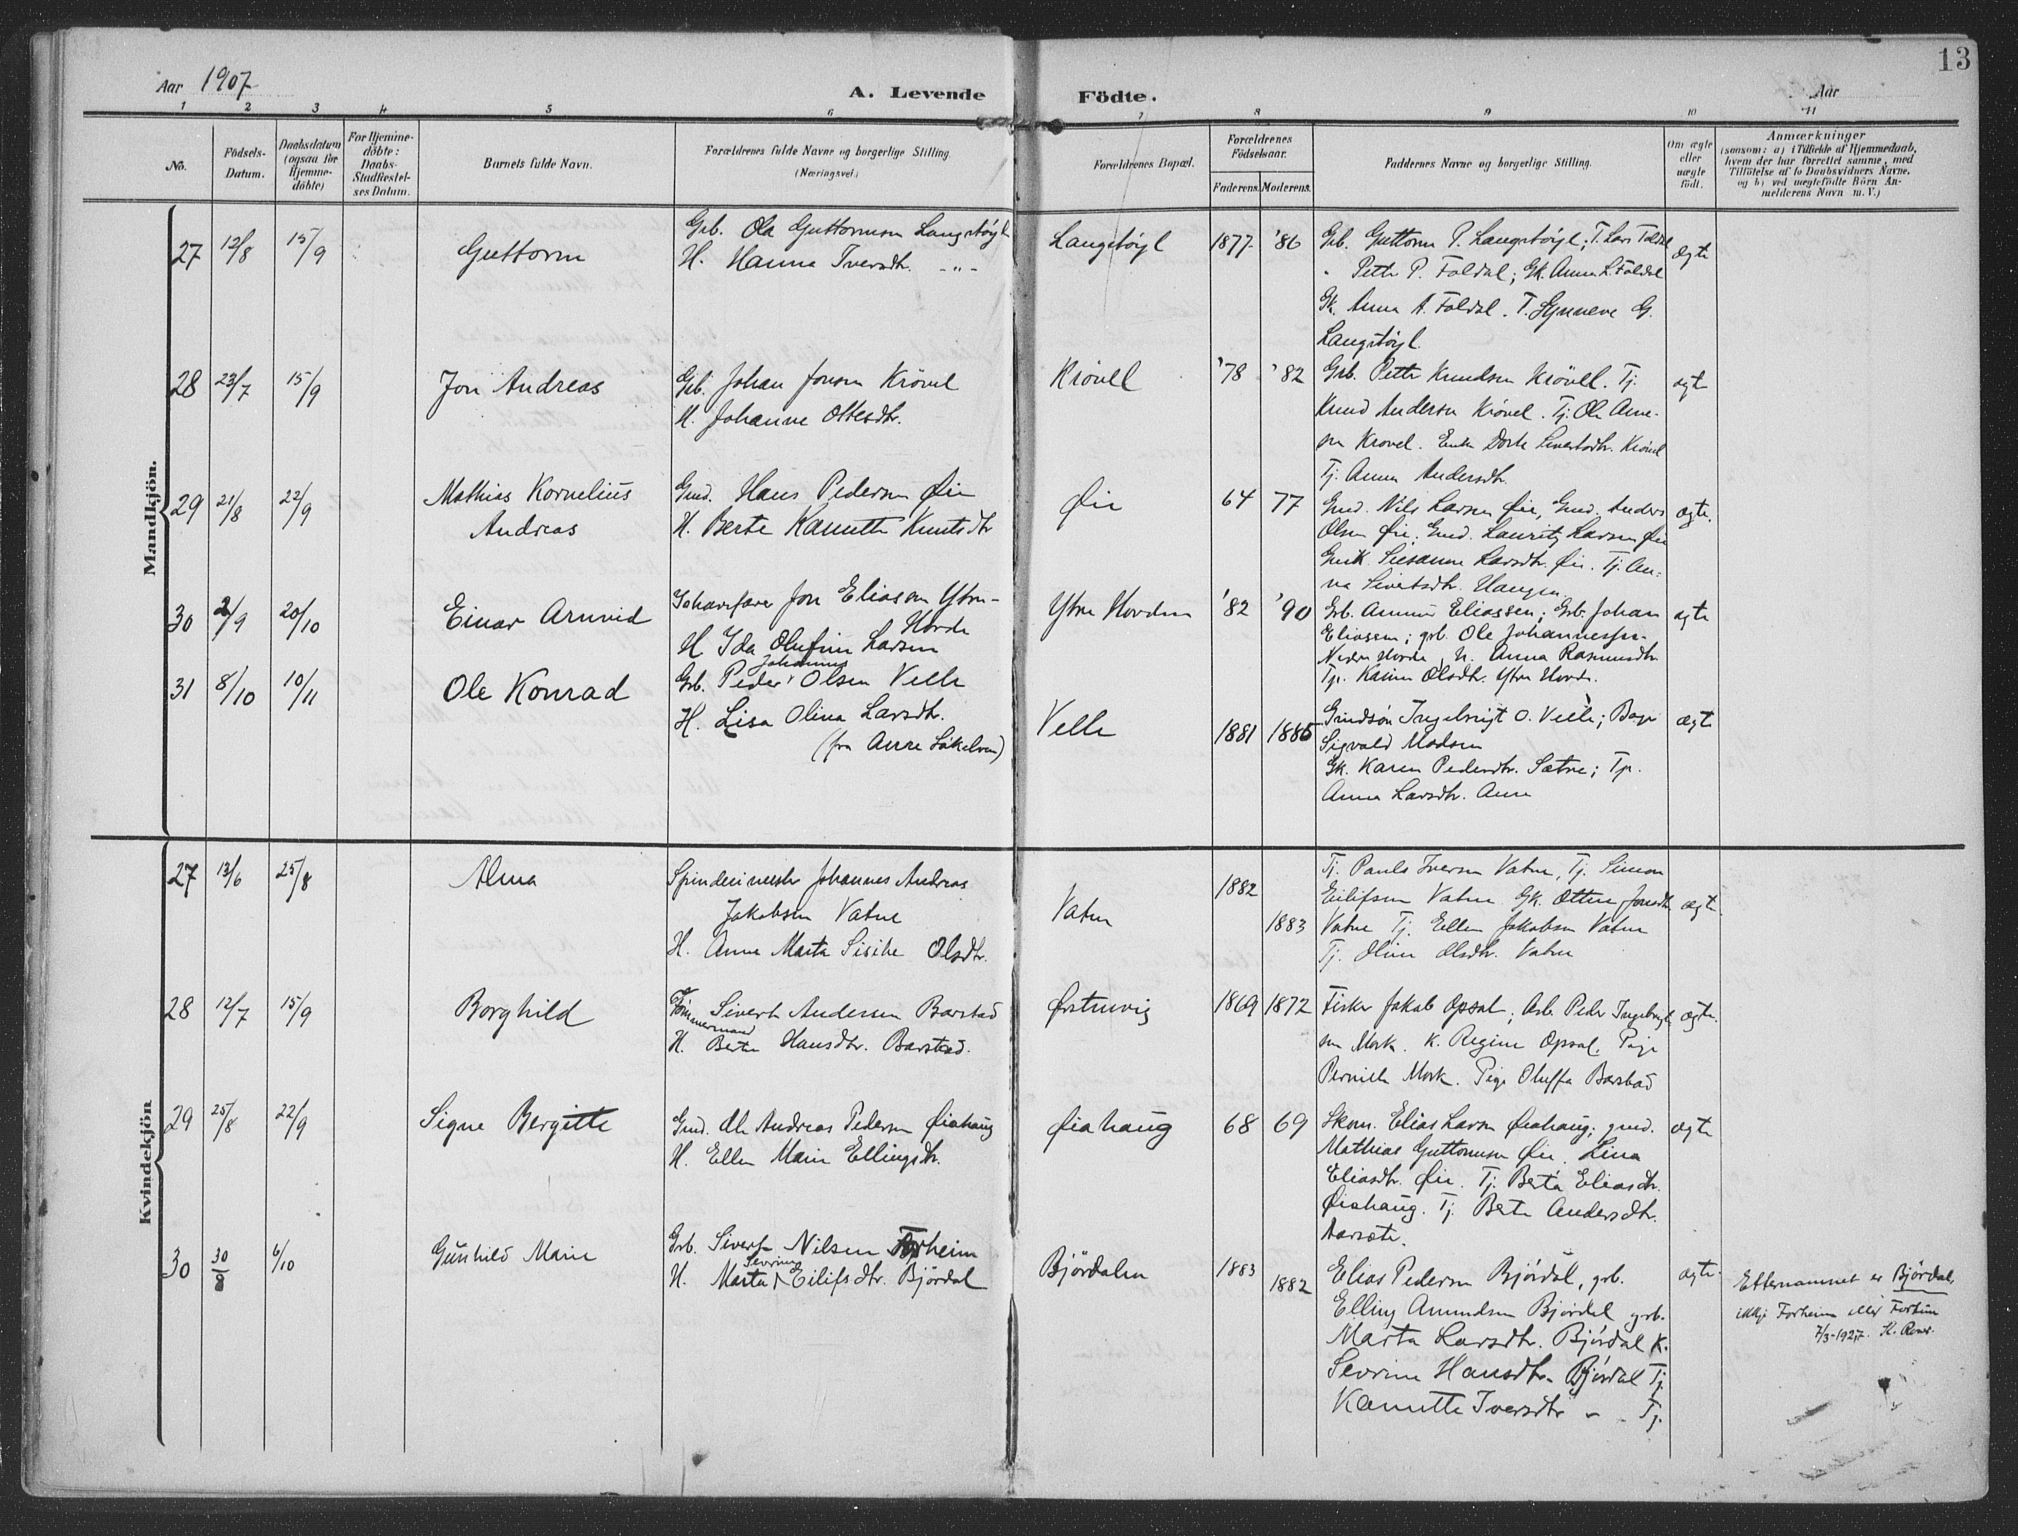 13
Aar 1907
A. Levende Födte.
Aar
1 2 3 4 5 6 7 8 9 10 11
No.
Födsels-
Datum.
Daabsdatum
(ogsaa for
Hjemme-
döbte)
For Hjemme-
döbte:
Daabs-
Stadfæstel-
ses Datum.
Barnets fulde Navn.
Forældrenes fulde Navne og borgerlige Stilling.
(Næringsvei.)
Forældrenes Bopæl.
Forældrenes
Födselsaar.
Faderens. Moderens.
Faddernes Navne og borgerlige Stilling.
Om ægte
eller
uægte
født.
Anmærkninger
(saasom: a) i Tilfælde af Hjemmedaab,
hvem der har forrettet samme, med
Tilföielse af to Daabsvidners Navne,
og b) ved uægtefödte Börn An-
melderens Navn m. V.)
Mandkjön.
27 12/8 15/9 Guttorm
Grb. Ola Guttormsen Langstøyl
H. Hanna Iversdtr. -"-
Langstøyl 1877 '86
Grb. Guttorm P. Langstøyl; T. Lars Foldal
" Petter P. Foldal; Gk. Anna L. Foldal
Gk. Anna A. Foldal. T. Synneve G.
Langstøyl.
ægte
28 23/7 15/9 Jon Andreas
Grb. Johan Jonsen Krövel
H. Johanne Ottesdtr.
Krövell '78 '82
Grb. Petter Knudsen Krövell. Tj.
Knud Andersen Krövel. Tj. Ole Arne-
sen Krovel. Enke Dorte Sivertsdtr. Krövel
Tj. Anna Andersdtr.
ægte
29 21/8 22/9 Mathias Kornelius
Andreas
Gmd. Hans Pedersen Øie
H. Berte Kanutte Knutsdtr
Øie 64 77
Gmd. Nils Larsen Øie, Gmd. Anders
Olsen Øie, Gmd. Lauritz Larsen Øie
Gmk. Susanne Larsdtr. Øie. Tj. An-
na Sivertsdtr. Haugen.
ægte.
30 2/9 20/10 Einar Arnvid
Johan Jon Eliassen Ytre-
Horde
H Ida Olufine Larsen
Ytre Hovden '82 '90
Grb. Eliassen; Grb. Johan
Eliassen; grb. Ole Johannessen
Nedre Horde, H. Anna Rasmusdtr.
Tp. Karen Olsdtr. Ytre Horde.
ægte
31 8/10 10/11 Ole Konrad
Johannes
Grb. Peder Olsen Velle
H. Lisa Olina Larsdtr.
(fra Aure Sökelven)
Velle 1881 1885
Gmdsøn Ingebrigt O. Velle; Bager
Sigvald Madsen
Gk. Karen Pedersdtr. Sætre; Tp.
Anna Larsdtr. Aure
ægte
Kvindekjön
27 13/6 25/8 Alma
Spinderimester Johannes Andreas
Jakobsen Vatne
H. Anne Marta Sisilie Olsdtr.
Vatne 1882
1883
Tj. Pauls Iversen Vatne, Tj. Simon
Eilifsen Vatne Gk. Ottine Jonsdtr.
Vatne Tj. Ellen Jakobsen Vatne
Tj. Oline Olsdtr. Vatne
ægte
28 12/7 15/9 Borghild
Tømmermand Sivert Andersen Barstad
H. Berte Hansdtr. Barstad.
Ørstenvig 1869 1872
Fisker Jakob Opsal; Arb. Peder Ingebrigt-
sen Mork. K. Regine Opsal. Pige
Pernille Mork. Pige Oluffa Barstad
ægte.
29 25/8 22/9 Signe Bergitte
Gmd. Ole Andreas Pedersen Øiahaug
H. Ellen Marie Ellingsdtr.
Øiahaug 68 69
Skom. Elias Larsen Øiahaug; gmd.
Mathias Guttormsen Øie. Lina
Eliasdtr. Øie. Tj. Berta Eliasdtr.
Øiahaug. Tj. Berte Andersdtr.
Aarsæte.
ægte
30 30/8 6/10 Gunhild Marie
Grb. Sivert Nilsen Forheim
Sevrine
H. Marta Eilifsdtr. Bjørdal
Björdalen 1883
1882
Elias Pedersen Bjørdal, grb.
Elling Amundsen Bjørdal grb.
Marta Larsdtr. Bjørdal K.
Sevrine Hansdtr. Bjørdal Tj.
Kanutte Iversdtr " " Tj.
ægte.
Etternamnet er Bjørdal,
ikkje Forheim eller Fortun
7/3-1927.